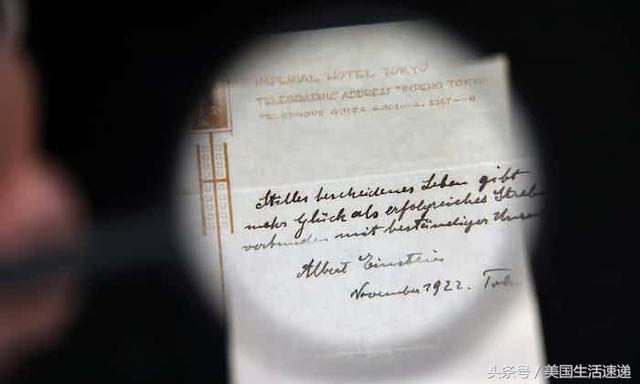 IMPERIAL HOTEL TOKYO
TELEGRAPHIC ADDRESS "IMPEHO TOKYO
Stilles bescheidenes Leben gibt
mehr Glück als erfolgreiches Streb
verbunden mit beständiger Unru
Albert Einstein
November 1922. Tok
头条号 / 美国生活速递